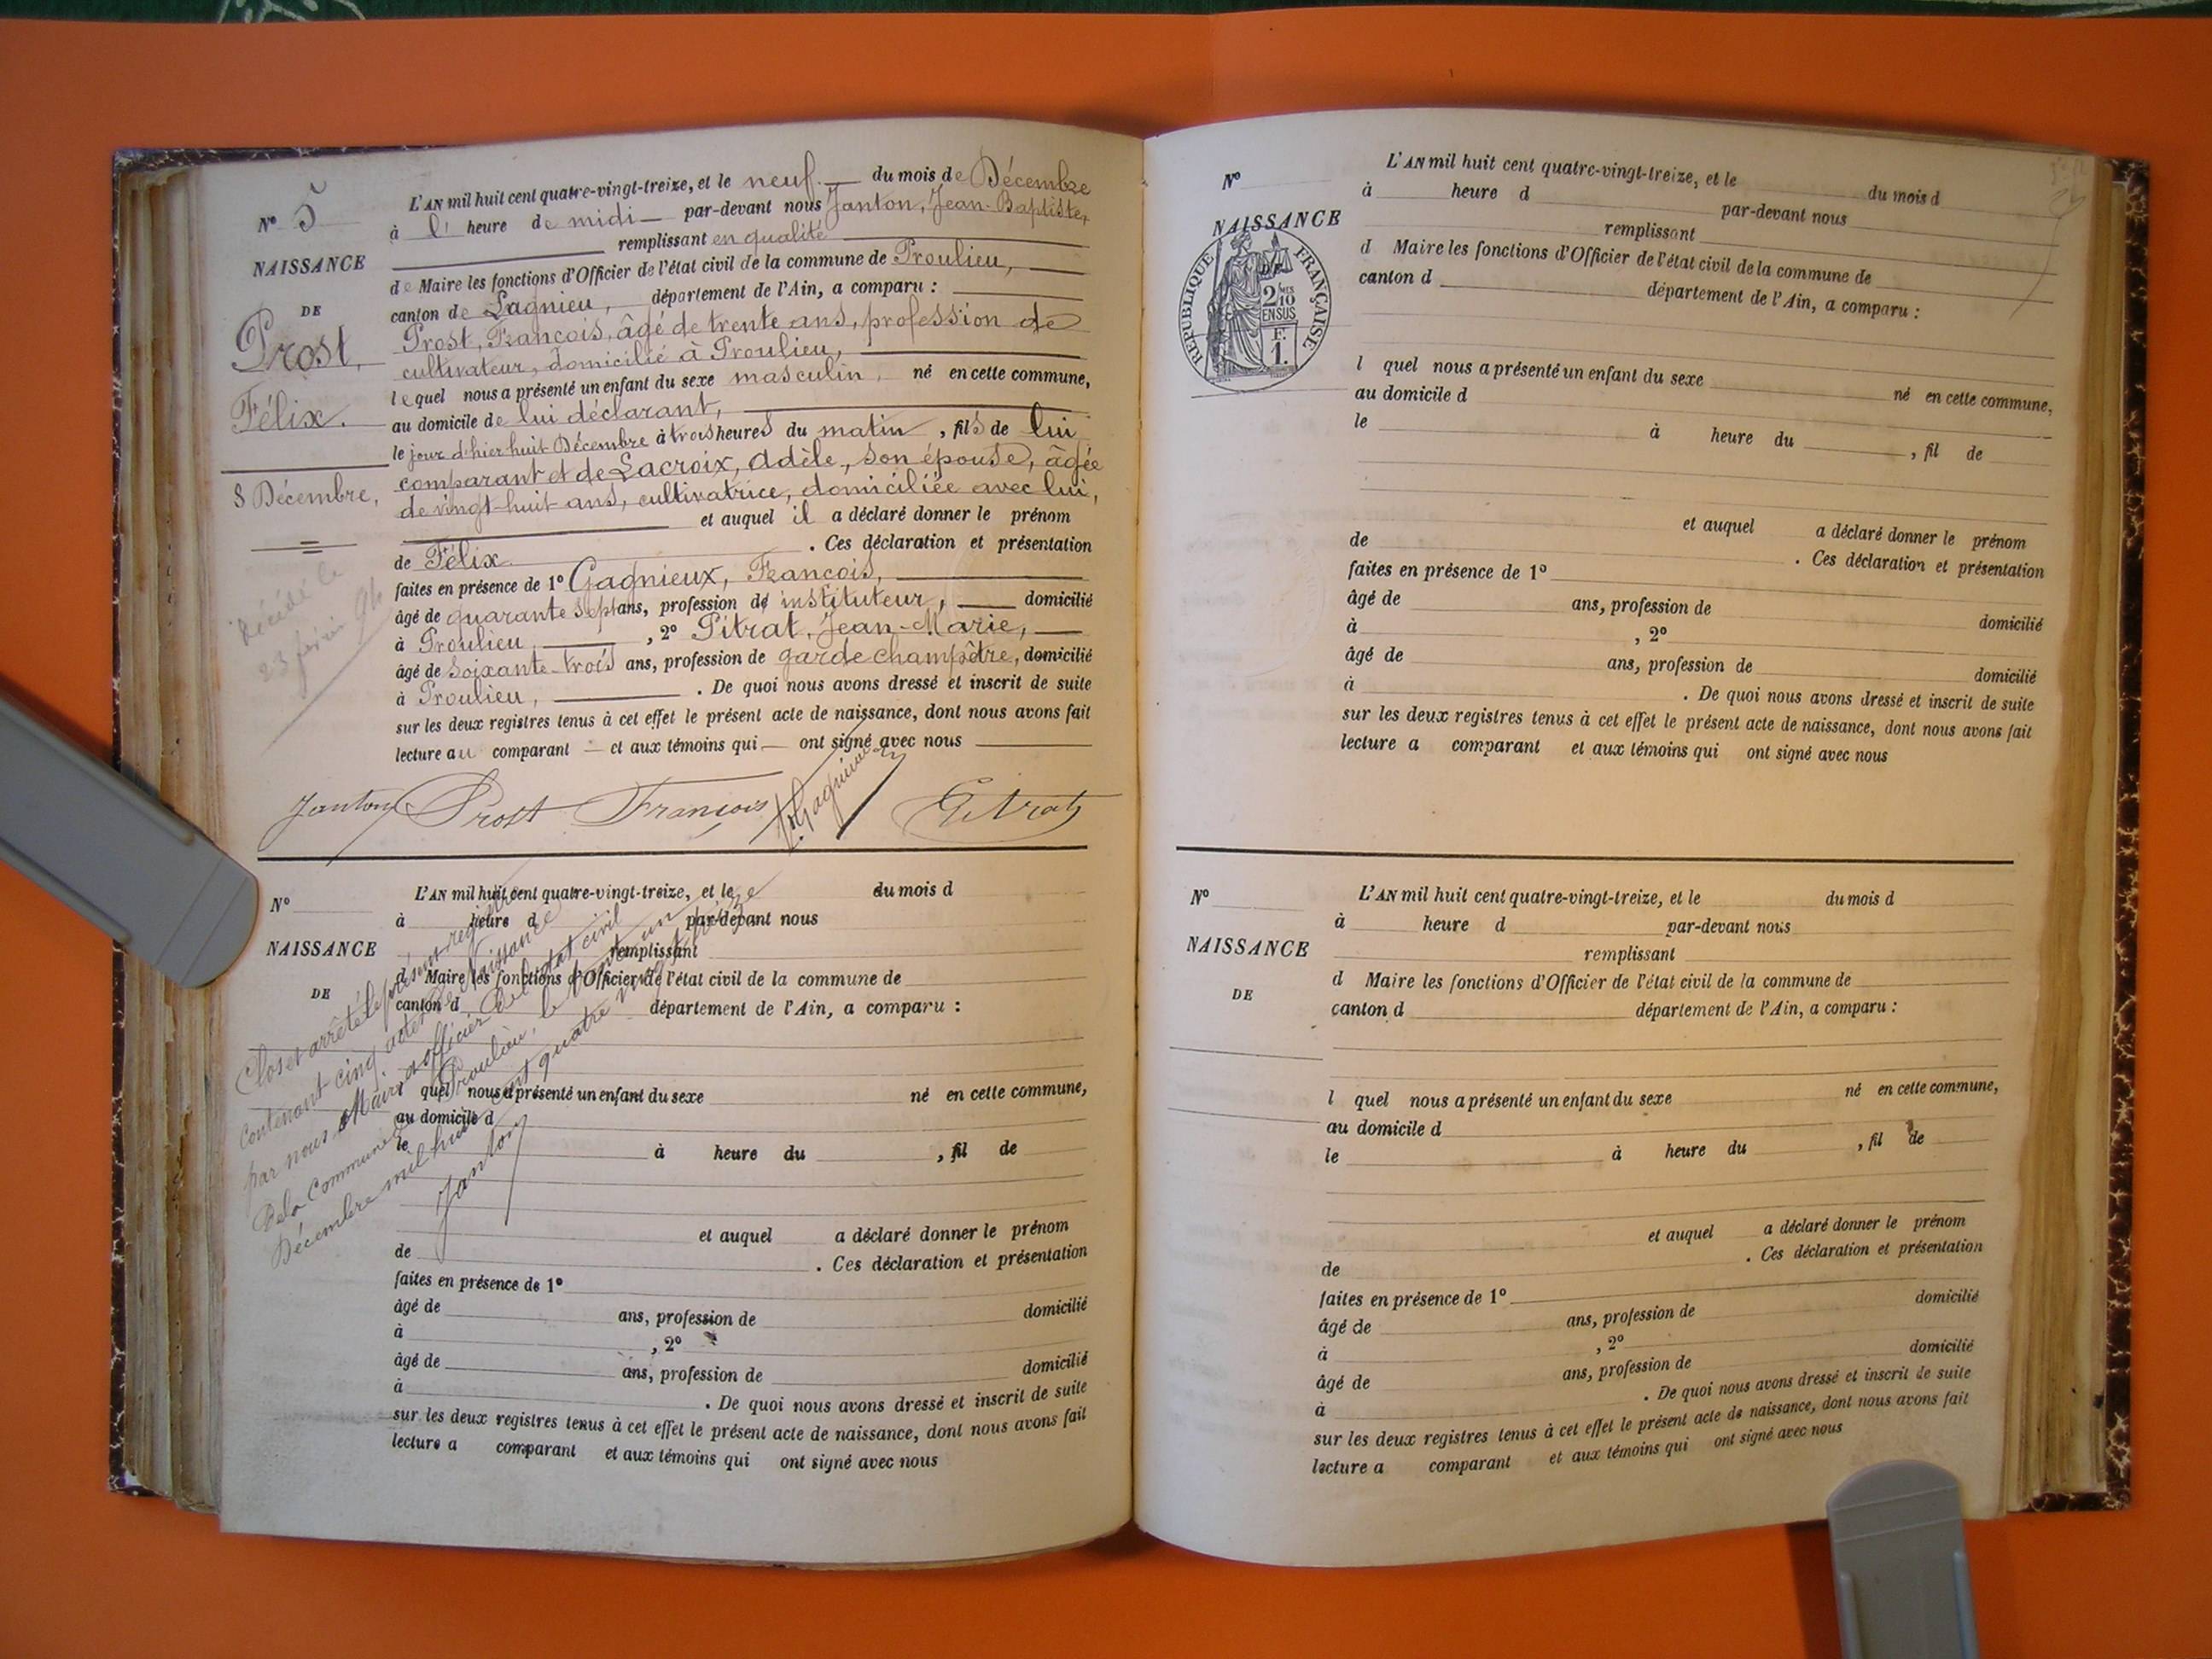 N° 5
NAISSANCE
DE
Prost,
Félix.
8 Décembre,
Décédé le
23 février 94
L'AN mil huit cent quatre-vingt-treize, et le neuf du mois de Décembre
à l' heure de midi par-devant nous Janton, Jean-Baptiste,
remplissant en qualité
de Maire les fonctions d'Officier de l'état civil de la commune de Proulieu,
canton de Lagnieu, département de l'Ain, a comparu :
Prost, François, âgé de trente ans, profession de
cultivateur, domicilié à Proulieu,
lequel nous a présenté un enfant du sexe masculin, né en cette commune,
au domicile de lui déclarant,
le jour d'hier huit Décembre à trois heures du matin, fils de lui
comparant et de Lacroix, Adèle, son épouse, âgée
de vingt-huit ans, cultivatrice, domiciliée avec lui,
et auquel il a déclaré donner le prénom
de Félix. Ces déclaration et présentation
faites en présence de 1° Gagnieux, François,
âgé de quarante sept ans, profession de instituteur, domicilié
à Proulieu, 2° Pitrat, Jean-Marie,
âgé de soixante-trois ans, profession de garde champêtre, domicilié
à Proulieu, . De quoi nous avons dressé et inscrit de suite
sur les deux registres tenus à cet effet le présent acte de naissance, dont nous avons fait
lecture au comparant et aux témoins qui ont signé avec nous
Janton Prost François Gagnieux Pitrat
N°
NAISSANCE
DE
L'AN mil huit cent quatre-vingt-treize, et le du mois d
à heure d par-devant nous
remplissant
d Maire les fonctions d'Officier de l'état civil de la commune de
canton d département de l'Ain, a comparu :
l quel nous a présenté un enfant du sexe né en cette commune,
au domicile d
le à heure du , fil de
et auquel a déclaré donner le prénom
de . Ces déclaration et présentation
faites en présence de 1°
âgé de ans, profession de domicilié
à , 2°
âgé de ans, profession de domicilié
à . De quoi nous avons dressé et inscrit de suite
sur les deux registres tenus à cet effet le présent acte de naissance, dont nous avons fait
lecture a comparant et aux témoins qui ont signé avec nous
Clos et arrêté le présent registre
contenant cinq actes de Naissance
par nous Maire et officier de l'état civil
de la Commune de Proulieu, le trente un
Décembre mil huit cent quatre vingt treize
Janton
N°
NAISSANCE
DE
REPUBLIQUE FRANÇAISE
2/10 MES
EN SUS
F.
1.
L'AN mil huit cent quatre-vingt-treize, et le du mois d
à heure d par-devant nous
remplissant
d Maire les fonctions d'Officier de l'état civil de la commune de
canton d département de l'Ain, a comparu :
l quel nous a présenté un enfant du sexe né en cette commune,
au domicile d
le à heure du , fil de
et auquel a déclaré donner le prénom
de . Ces déclaration et présentation
faites en présence de 1°
âgé de ans, profession de domicilié
à , 2°
âgé de ans, profession de domicilié
à . De quoi nous avons dressé et inscrit de suite
sur les deux registres tenus à cet effet le présent acte de naissance, dont nous avons fait
lecture a comparant et aux témoins qui ont signé avec nous
N°
NAISSANCE
DE
L'AN mil huit cent quatre-vingt-treize, et le du mois d
à heure d par-devant nous
remplissant
d Maire les fonctions d'Officier de l'état civil de la commune de
canton d département de l'Ain, a comparu :
l quel nous a présenté un enfant du sexe né en cette commune,
au domicile d
le à heure du , fil de
et auquel a déclaré donner le prénom
de . Ces déclaration et présentation
faites en présence de 1°
âgé de ans, profession de domicilié
à , 2°
âgé de ans, profession de domicilié
à . De quoi nous avons dressé et inscrit de suite
sur les deux registres tenus à cet effet le présent acte de naissance, dont nous avons fait
lecture a comparant et aux témoins qui ont signé avec nous